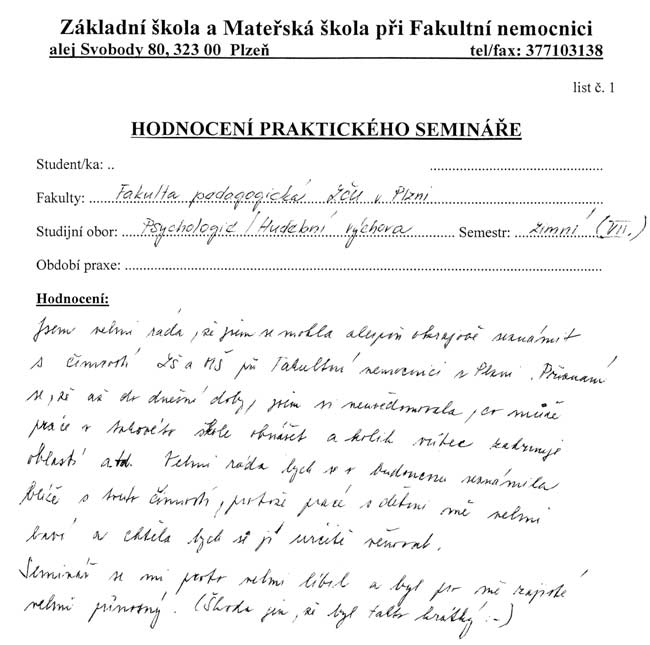 Základní škola a Mateřská škola při Fakultní nemocnici
alej Svobody 80, 323 00 Plzeň tel/fax: 377103138
list č. 1
HODNOCENÍ PRAKTICKÉHO SEMINÁŘE
Student/ka: ..
Fakulty: Fakulta pedagogická ZČU v Plzni
Studijní obor: Psychologie/Hudební výchova Semestr: zimní (VII.)
Období praxe:
Hodnocení:
Jsem velmi ráda, že jsem se mohla alespoň okrajově seznámit
s činností ZŠ a MŠ při Fakultní nemocnici v Plzni. Přiznám
se, že až do dnešní doby, jsem si neuvědomovala, co může
práce v takovéto škole obnášet a kolik vůbec zahrnuje
oblastí atd. Velmi ráda bych se v budoucnu seznámila
blíže s touto činností, protože práce s dětmi mě velmi
baví a chtěla bych se jí určitě věnovat.
Seminář se mi proto velmi líbil a byl pro mě zajisté
velmi přínosný. (Škoda jen, že byl takto krátký :-)